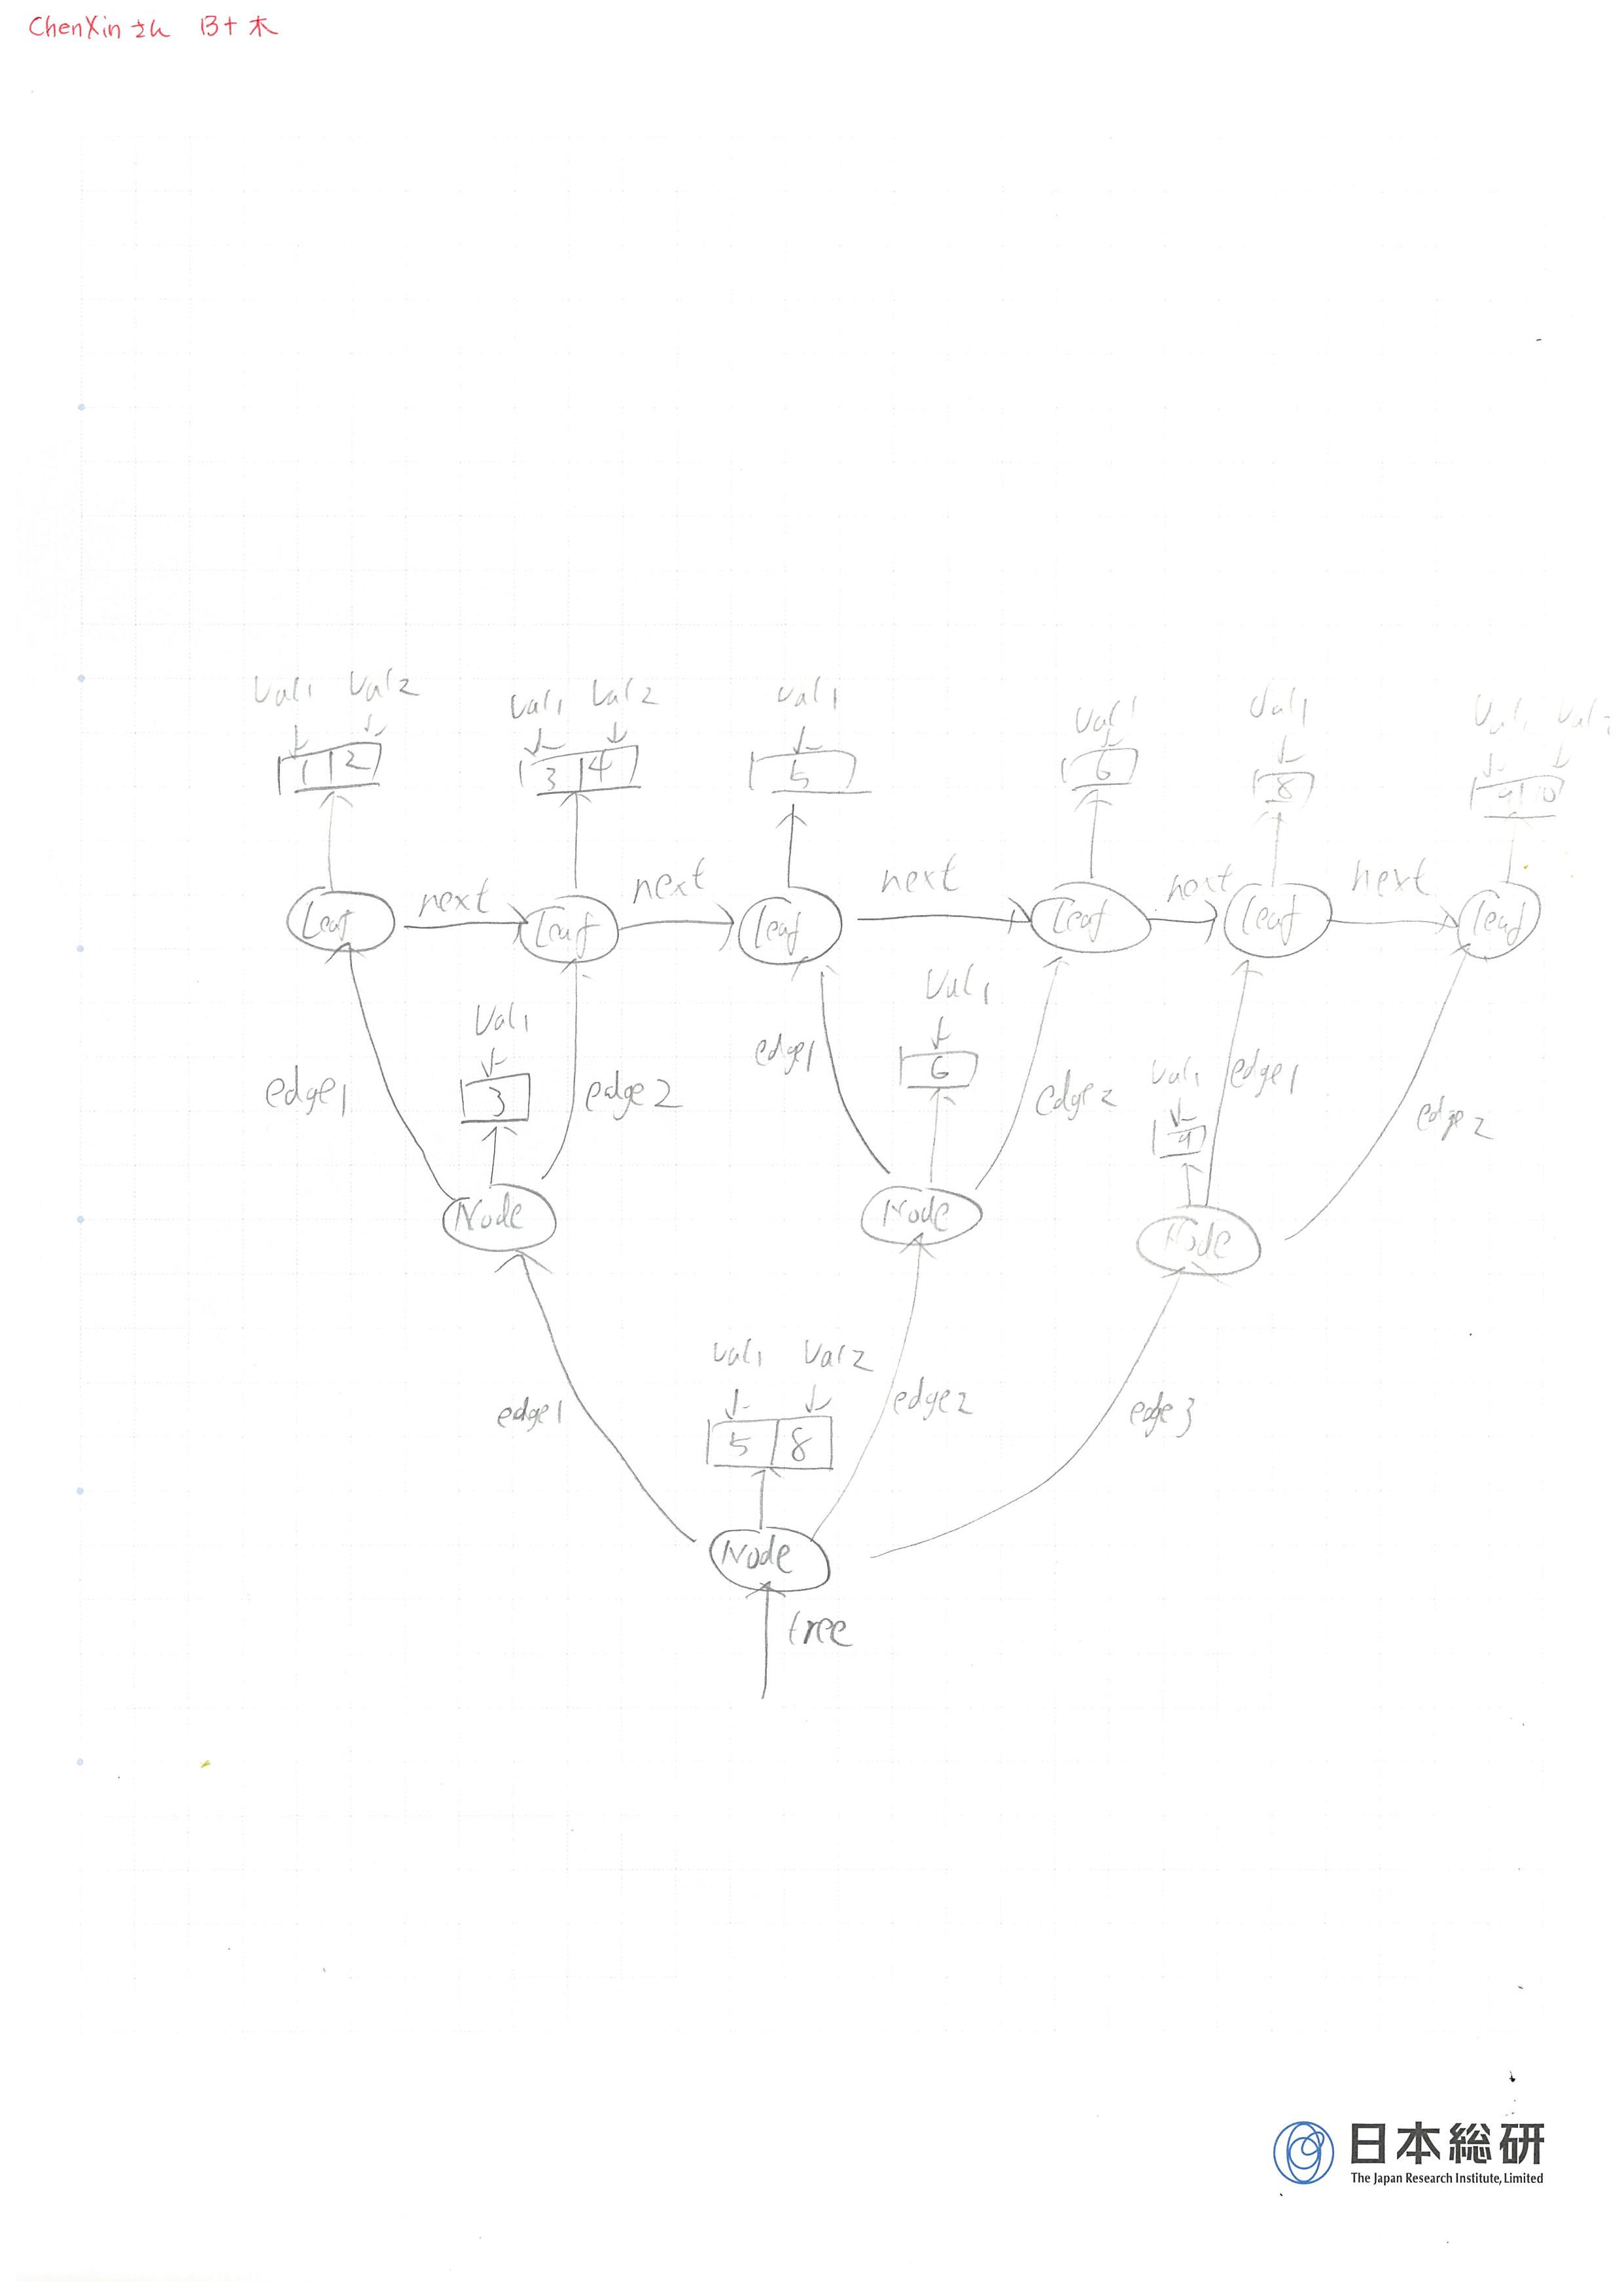 ChenXin さん B+ 木
val1 val2
val1 val2
val1
val1
val1
val1 val2
1 2
3 4
5
6
8
9 10
Leaf next Leaf next Leaf next Leaf next Leaf next Leaf
val1
3
edge1
edge2
edge1
val1
6
edge2
val1
9
edge1
edge2
Node
Node
Node
val1 val2
5 8
edge1
edge2
edge3
Node
tree
日本総研
The Japan Research Institute, Limited